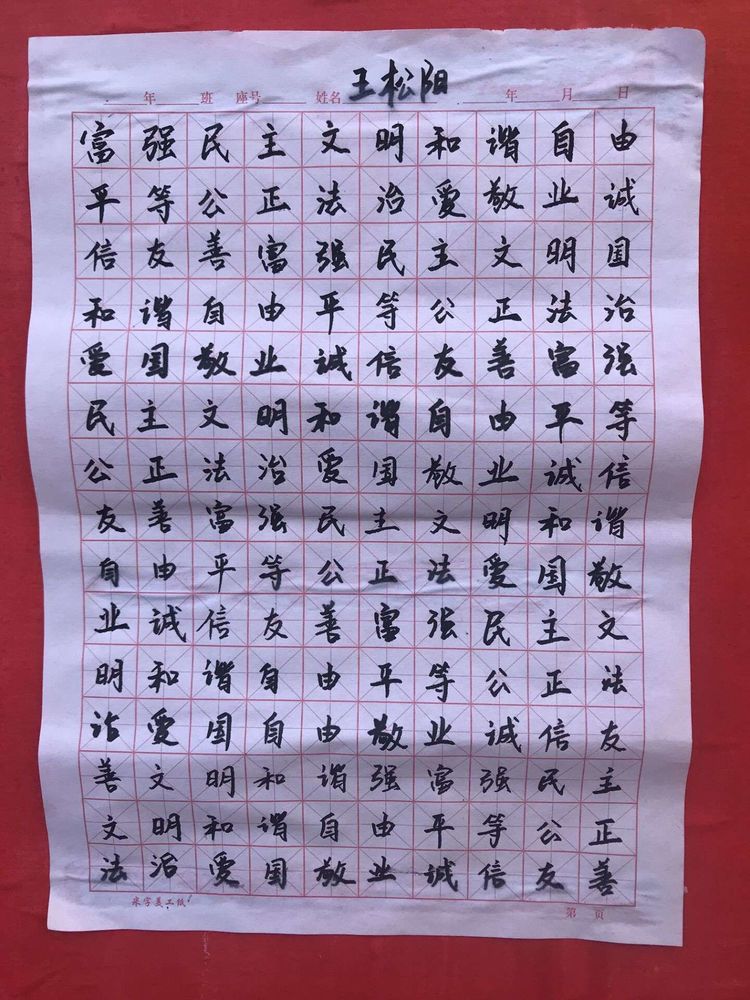 年 班 座号 姓名 王松阳 年 月 日
富强民主文明和谐自由
平等公正法治爱敬业诚
信友善富强民主文明国
和谐自由平等公正法治
爱国敬业诚信友善富强
民主文明和谐自由平等
公正法治爱国敬业诚信
友善富强民主文明和谐
自由平等公正法爱国敬
业诚信友善富强民主文
明和谐自由平等公正法
治爱国自由敬业诚信友
善文明和谐强富强民主
文明和谐自由平等公正
法治爱国敬业诚信友善
米字美工纸
第 页